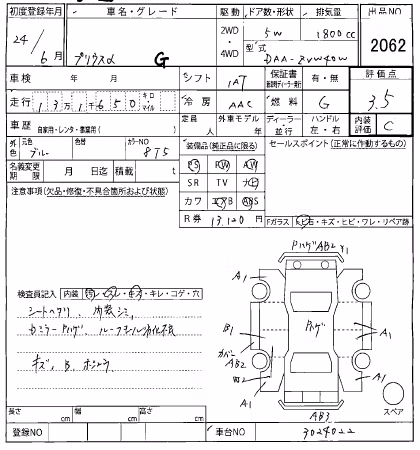 初度登録年月 車名・グレード 駆動 ドア数・形状 排気量 出品NO
24/6月 プリウスα G 2WD・4WD 5W 1800cc 2062
型式 DAA-ZVW40W
車検 年 月 シフト 1AT 保証書 有・無 評価点
走行 13万1千650 キロ・マイル 冷房 AAC 燃料 G 3.5
車歴 自家用・レンタ・事業用( ) 定員 人 外車モデル 年 ディーラー・並行 ハンドル 左・右 内装評価 C
外色 元色 ブルー 色替 カラーNO 8T5 装備品(純正品に限る) セールスポイント(正常に作動するもの)
名義変更期限 月 日迄 積載 t PS PW AW
注意事項(欠品・修復・不具合箇所および状態) SR TV ナビ
カワ エアB ABS
R券 13,120円 Fガラス トビ石・キズ・ヒビ・ワレ・リペア跡
PハゲAB2 Y1
A1 A1
検査員記入 内装 汚れ・スレ・キズ・キレ・コゲ・穴 Pハゲ
シートヘタリ 内装シミ B1 A1
カバーAB2
キズ, B
A1 A1
スペア
長さ cm 幅 cm 高さ cm AB3
登録NO 車台NO 3024022